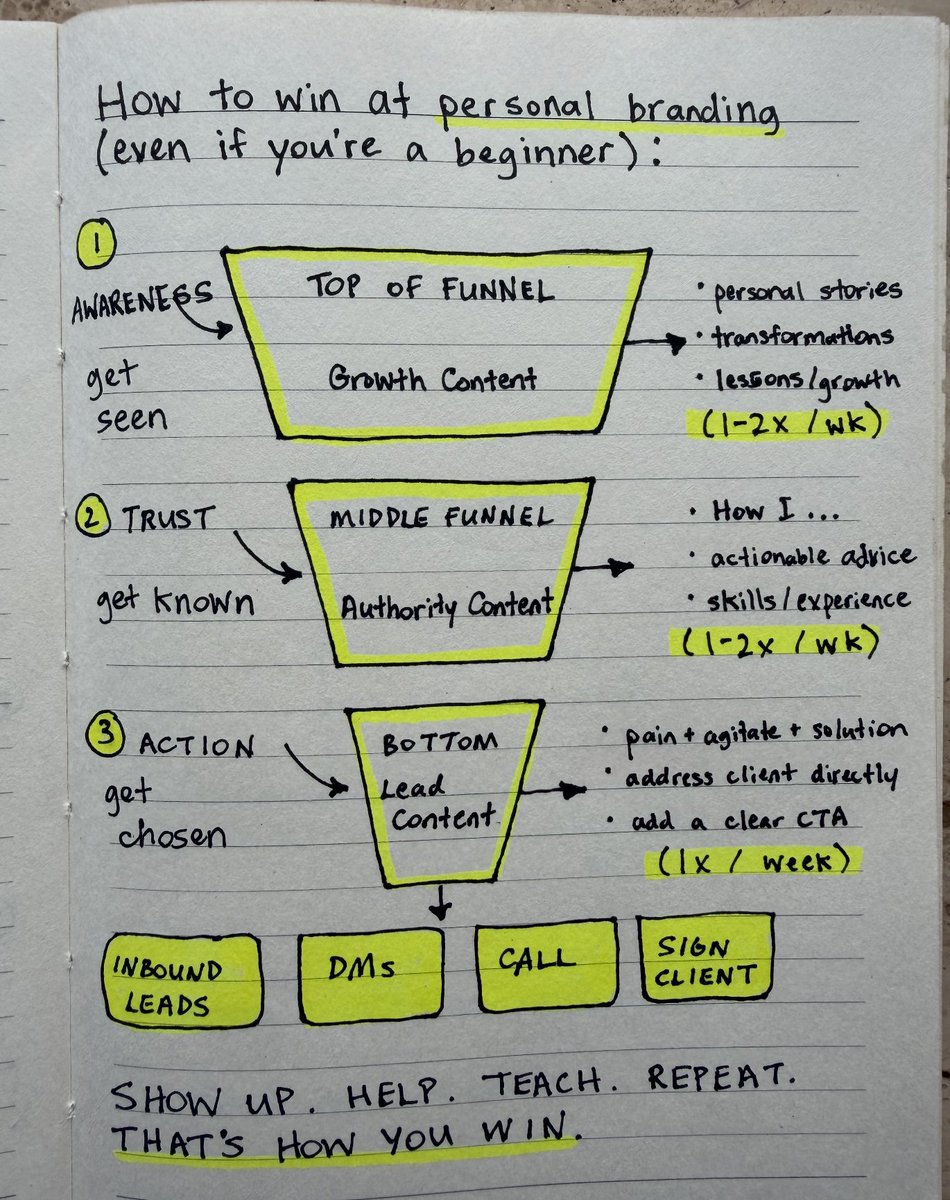 How to win at personal branding
(even if you're a beginner):
1
AWARENESS
get
seen
TOP OF FUNNEL
Growth Content
• personal stories
• transformations
• lessons/growth
(1-2x / wk)
2 TRUST
get known
MIDDLE FUNNEL
Authority Content
• How I ...
• actionable advice
• skills/experience
(1-2x / wk)
3 ACTION
get
chosen
BOTTOM
Lead
Content
• pain + agitate + solution
• address client directly
• add a clear CTA
(1x / week)
INBOUND
LEADS
DMs
CALL
SIGN
CLIENT
SHOW UP. HELP. TEACH. REPEAT.
THAT'S HOW YOU WIN.